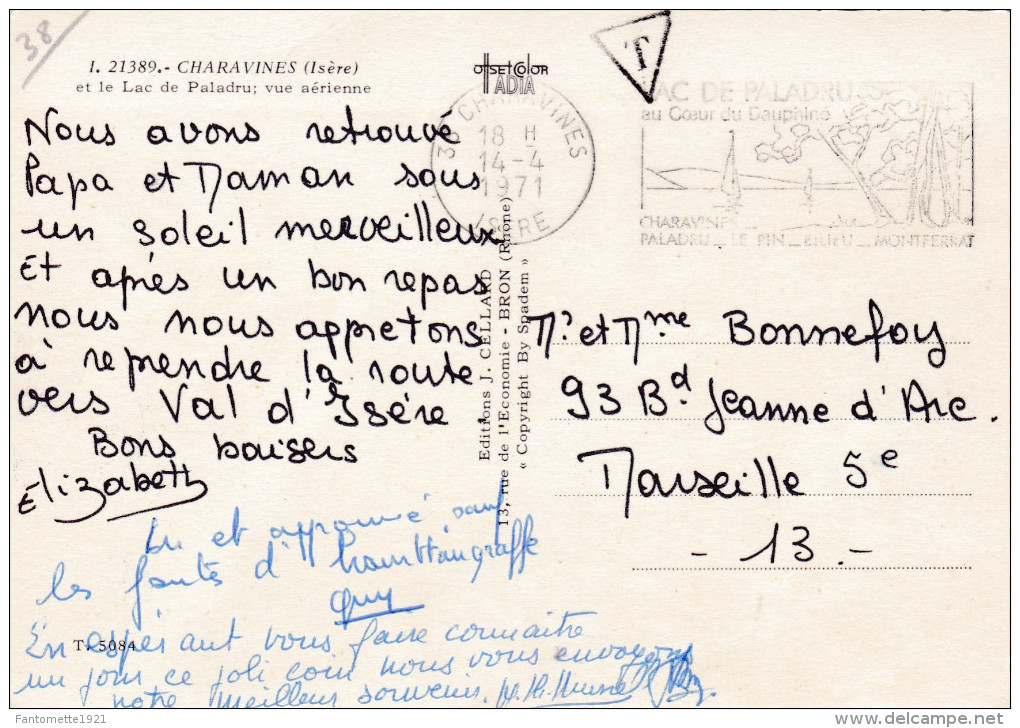 38
I. 21389.- CHARAVINES (Isère)
et le Lac de Paladru; vue aérienne
OffsetColor
ADIA
T
38 CHARAVINES
18 H
14-4
1971
ISERE
LAC DE PALADRU
au Cœur du Dauphiné
CHARAVINES
PALADRU _ LE PIN _ BILIEU _ MONTFERRAT
Nous avons retrouvé
Papa et Maman sous
un soleil merveilleux
Et après un bon repas
nous nous appretons
à reprendre la route
vers Val d'Isère
Bons baisers
Elizabeth
Lu et approuvé, sauf
les fautes d'
Guy
En espérant vous faire connaitre
un jour ce joli coin nous vous envoyons
notre meilleur souvenir.
T. 5084
Editions J. CELLARD
13, rue de l'Economie - BRON (Rhône)
« Copyright By Spadem »
Mr et Mme Bonnefoy
93 Bd Jeanne d'Arc.
Marseille 5e
- 13 -
Fantomette1921
delcampe.net